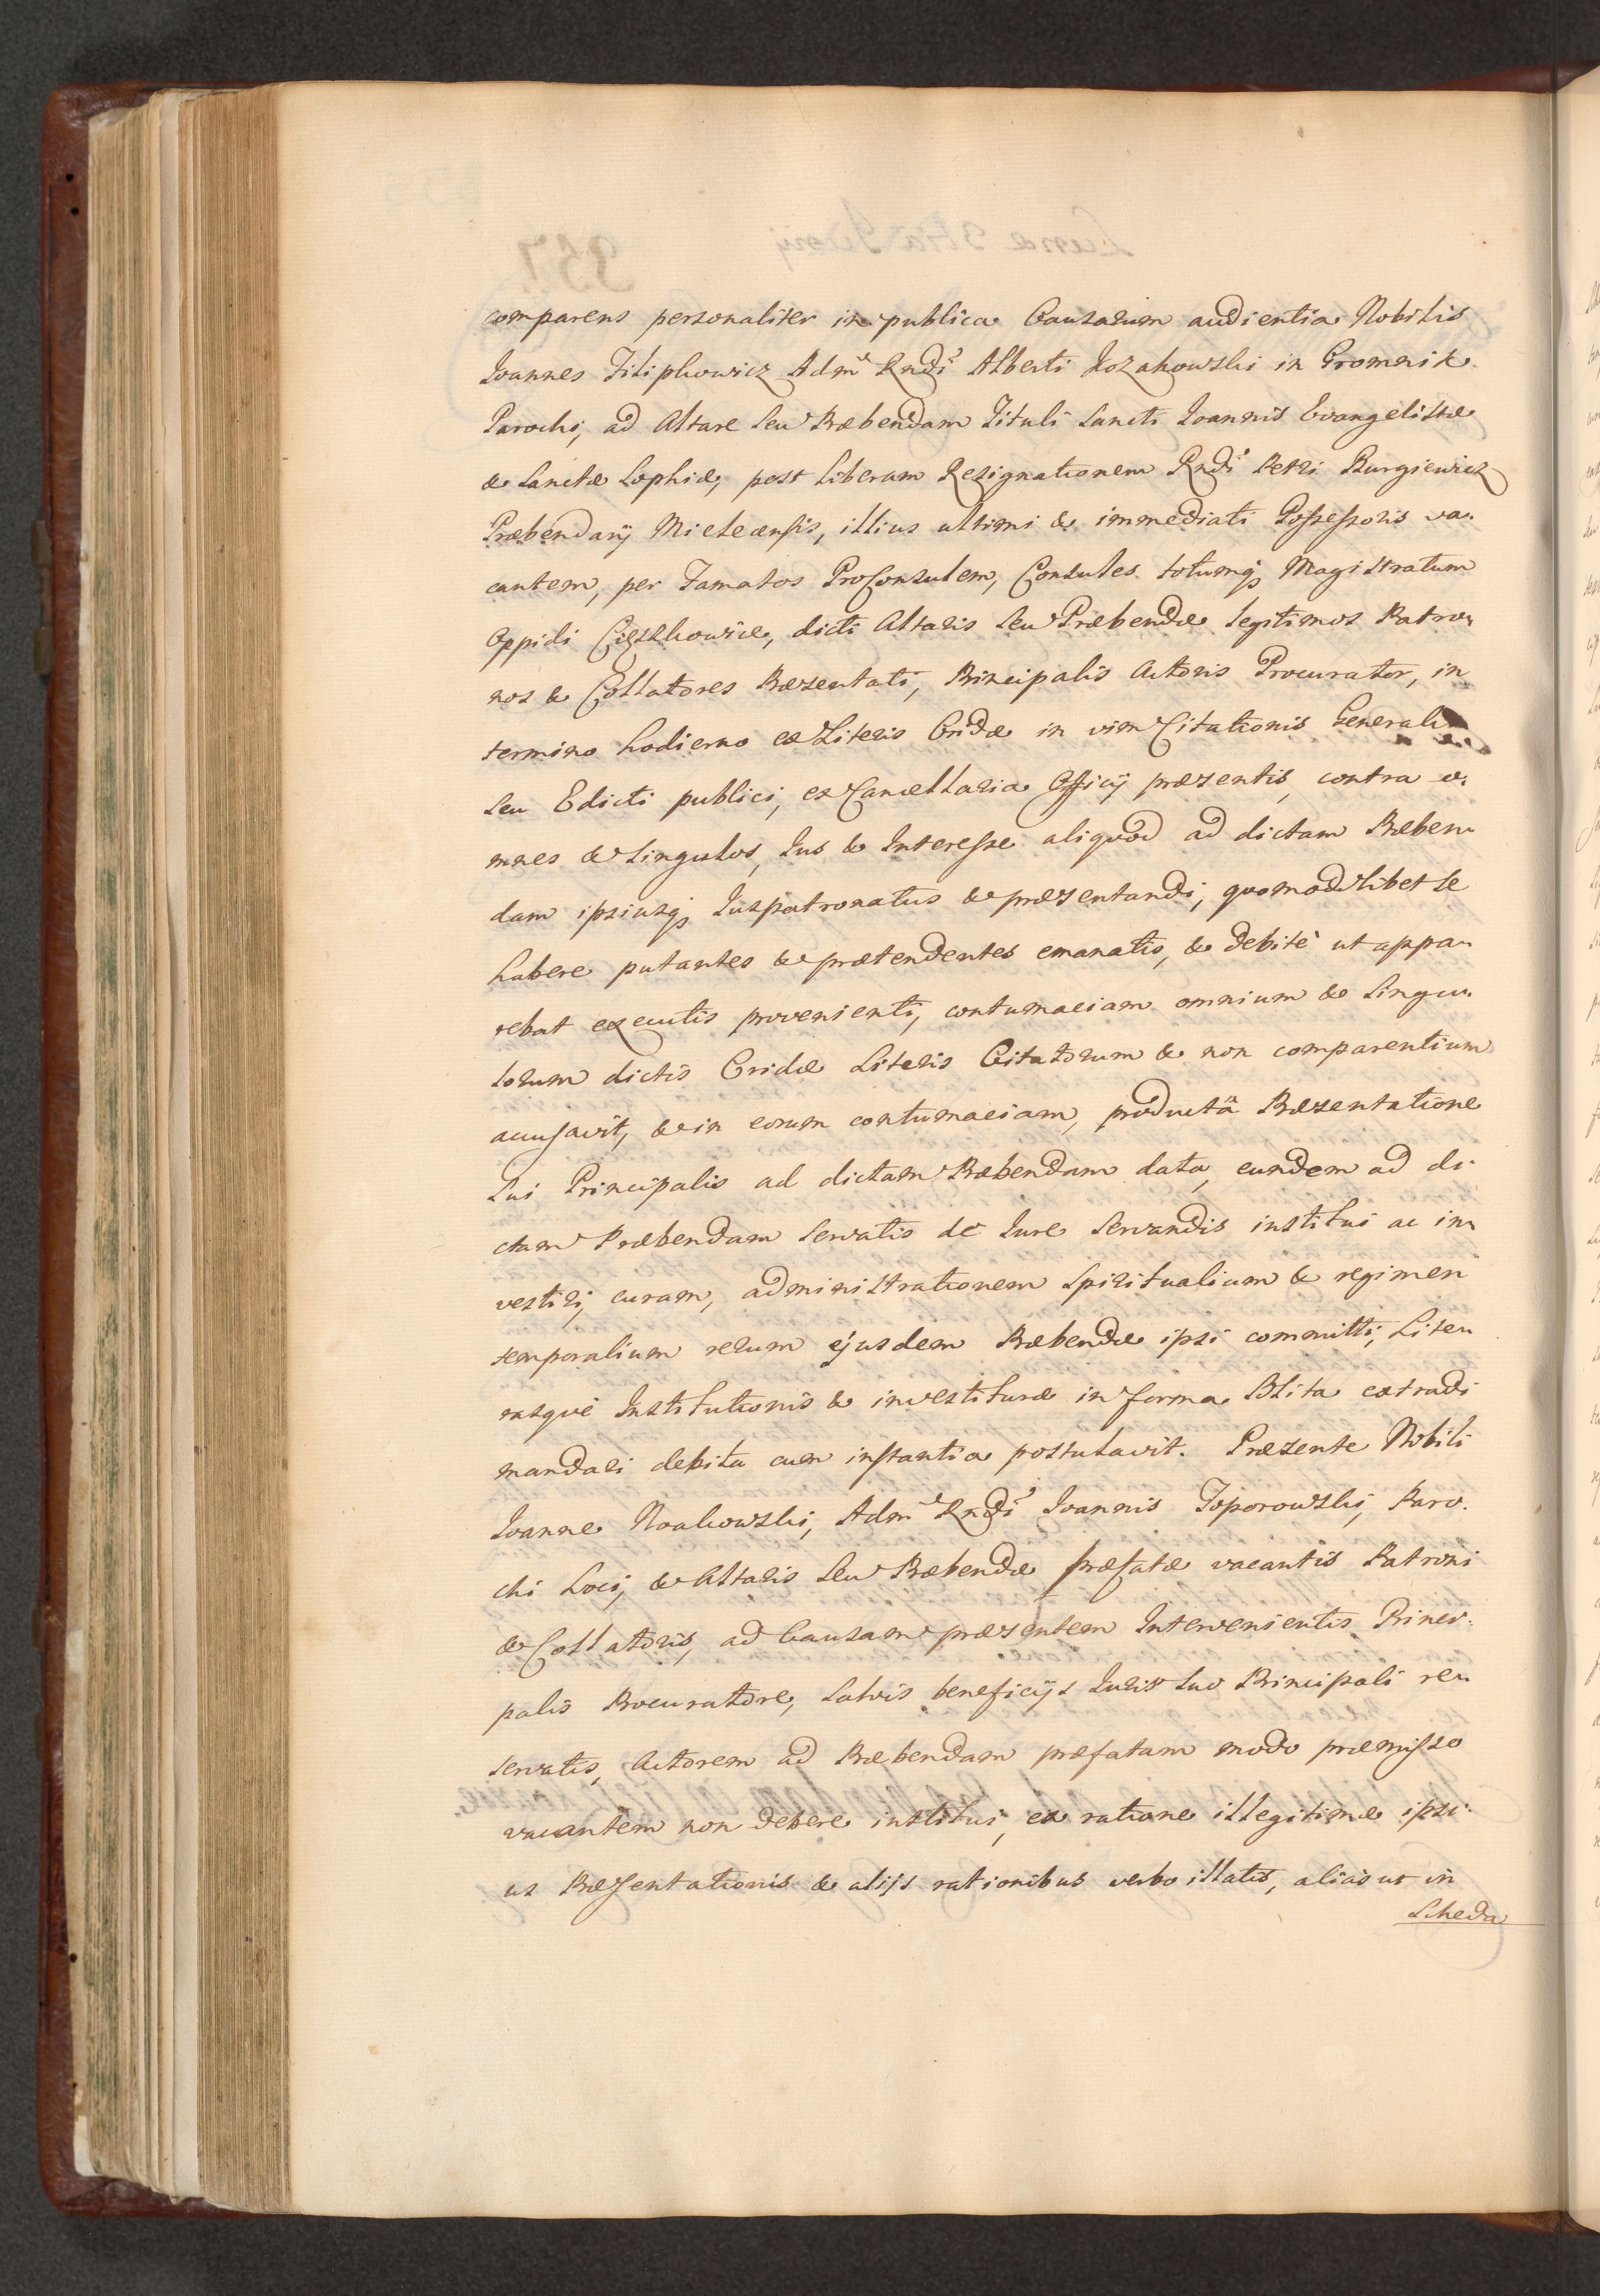 comparens personaliter in publica Causarum audientia Nobilis
Joannes Filiphowicz Adm Rndi Alberti Kozakowski in Gromnik
Parochi, ad Altare seu Præbendam Tituli Sancti Joannis Evangelistæ
& Sanctæ Sophiæ, post liberam Resignationem Rndi Petri Burgiewicz
Præbendarij Mielecensis, illius ultimi & immediati Possessoris va-
cantem, per Famatos ProConsulem, Consules totumq Magistratum
Oppidi Ciężkowice, dicti Altaris seu Præbendæ legitimos Patro-
nos & Collatores Præsentati, Principalis Actoris Procurator, in
termino hodierno ex Literis Cridæ in vim Citationis Generalis
seu Edicti publici, ex Cancellaria Officij præsentis, contra o-
mnes & singulos, Jus & Interesse aliquod ad dictam Præben-
dam ipsiusq Juspatronatus & præsentandi, quomodolibet se
habere putantes & prætendentes emanatis, & debitè ut appa-
rebat executis provenienti, contumaciam omnium & singu-
lorum dictis Cridæ Literis Citatorum & non comparentium
accusavit, & in eorum contumaciam, productâ Præsentatione
sui Principalis ad dictam Præbendam data, eundem ad di-
ctam Præbendam servatis de Jure servandis institui ac in-
vestiri, curam, administrationem Spiritualium & regimen
temporalium rerum ejusdem Præbendæ ipsi committi, Lite-
rasque Institutionis & investituræ in forma solita extradi
mandari debita cum instantia postulavit. Præsente Nobili
Joanne Noakowski, Adm Rndi Joannis Toporowski, Paro-
chi Loci, & Altaris seu Præbendæ præfatæ vacantis Patroni
& Collatoris, ad Causam præsentem Intervenientis Princi-
palis Procuratore, salvis beneficijs Juris suo Principali re-
servatis, Actorem ad Præbendam præfatam modo præmisso
vacantem non debere institui, ex ratione illegitimæ ipsi-
us Præsentationis & alijs rationibus verbo illatis, alias ut in
Scheda